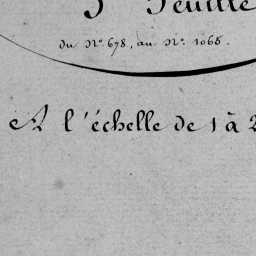 3e Feuille
du No 678, au No. 1068.
A l'échelle de 1 à 2